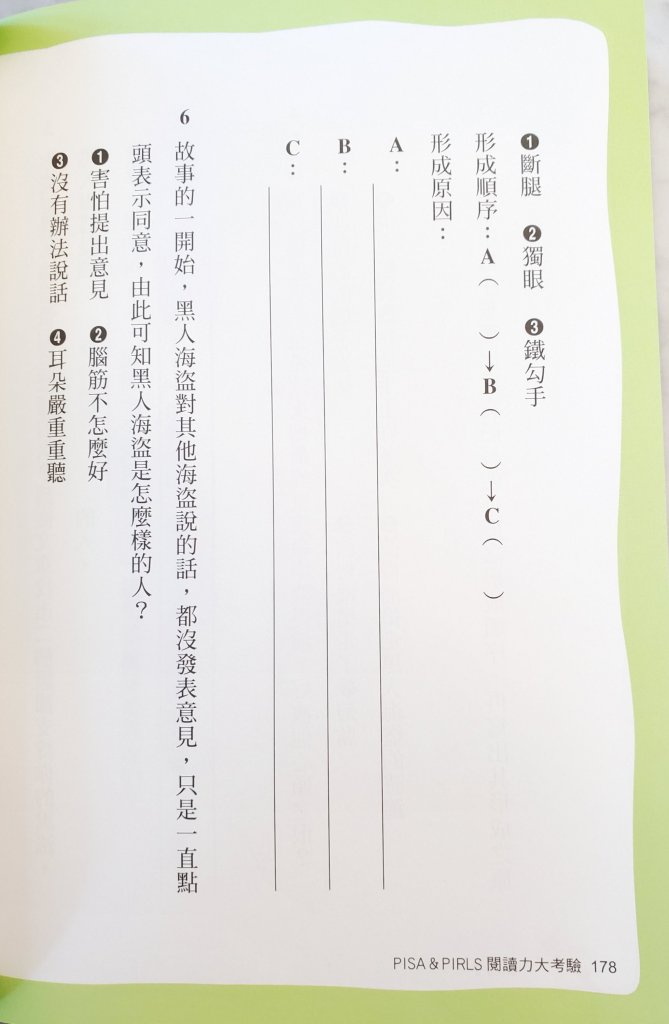 ❶斷腿　❷獨眼　❸鐵勾手
形成順序：A（　　）→B（　　）→C（　　）
形成原因：
A：
B：
C：
6 故事的一開始，黑人海盜對其他海盜說的話，都沒發表意見，只是一直點
頭表示同意，由此可知黑人海盜是怎麼樣的人？
❶害怕提出意見　❷腦筋不怎麼好
❸沒有辦法說話　❹耳朵嚴重重聽
PISA & PIRLS 閱讀力大考驗 178